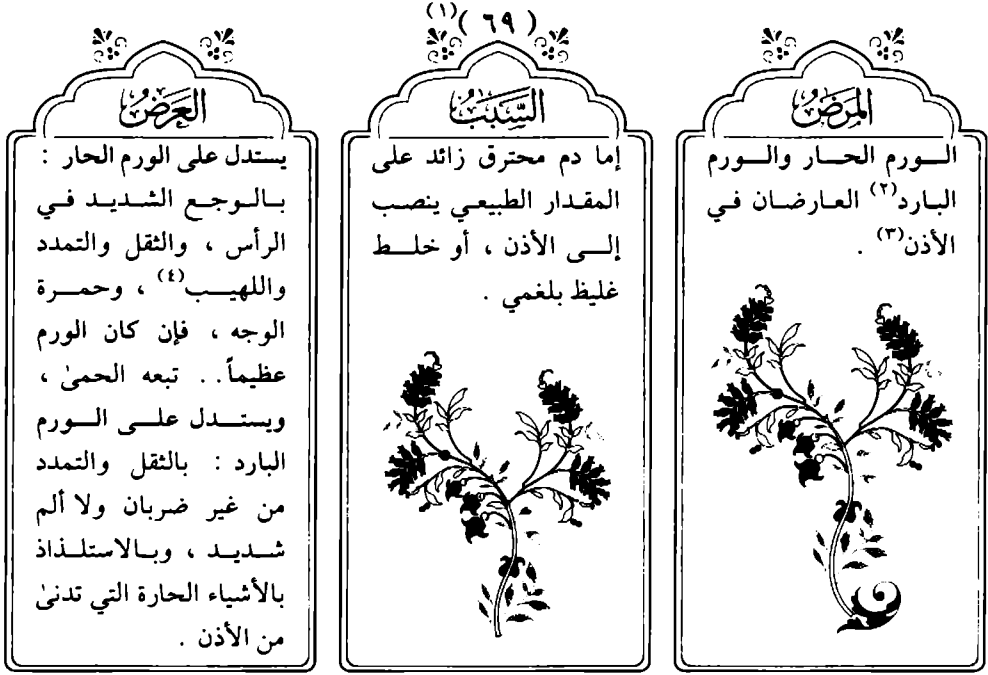 (٦٩)(١)
المرض
الورم الحار والورم
البارد(٢) العارضان في
الأذن(٣) .
السبب
إما دم محترق زائد على
المقدار الطبيعي ينصب
إلى الأذن ، أو خلط
غليظ بلغمي .
العرض
يستدل على الورم الحار :
بالوجع الشديد في
الرأس ، والثقل والتمدد
واللهيب(٤) ، وحمرة
الوجه ، فإن كان الورم
عظيماً.. تبعه الحمىٰ ،
ويستدل على الورم
البارد : بالثقل والتمدد
من غير ضربان ولا ألم
شديد ، وبالاستلذاذ
بالأشياء الحارة التي تدنىٰ
من الأذن .